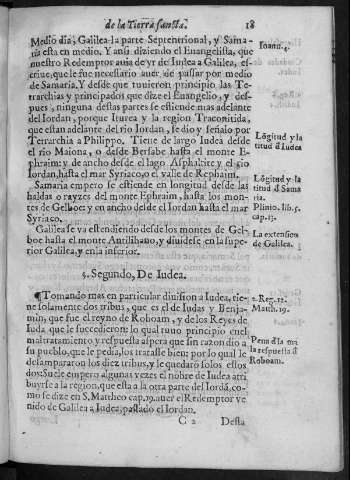 de la Tierra sancta.
18
Medio dia, Galilea la parte Septentrional, y Sama-
ria esta en medio. Y ansi diziendo el Euangelista, que
nuestro Redemptor auia de yr de Iudea a Galilea, es-
criue, que le fue necessario auer de passar por medio
de Samaria, Y desde que tuuieron principio las Te-
trarchias y principados que dize el Euangelio, y des-
pues, ninguna destas partes se estiende mas adelante
del Iordan, porque Iturea y la region Traconitida,
que estan adelante del rio Iordan, se dio y señalo por
Tetrarchia a Philippo. Tiene de largo Iudea desde
el rio Maiona, o desde Bersabe hasta el monte E-
phraim: y de ancho desde el lago Asphaltite y el rio
Iordan, hasta el mar Syriaco, o el valle de Rephaim.
Samaria empero se estiende en longitud desde las
haldas o rayzes del monte Ephraim, hasta los mon-
tes de Gelboe: y en ancho desde el Iordan hasta el mar
Syriaco.
Galilea se va estendiendo desde los montes de Gel-
boe hasta el monte Antilibano, y diuidese en la supe-
rior Galilea, y en la inferior.
Ioann. 4.
Lōgitud y la
titud d̄ Iudea
Lōgitud y la
titud d̄ Sama
ria.
Plinio. lib. 5.
cap. 13.
La extension
de Galilea.
5. Segundo, De Iudea.
¶ Tomando mas en particular diuision a Iudea, tie-
ne solamente dos tribus, que es el de Iudas y Benja-
min, que fue el reyno de Roboam, y de los Reyes de
Iuda que le succedieron: lo qual tuuo principio en el
mal tratamiento y respuesta aspera que sin razon dio a
su pueblo, que le pedia, los tratasse bien: por lo qual le
desampararon los diez tribus, y le quedarō solos estos
dos: Suele empero algunas vezes el nōbre de Iudea atri
buyrse a la region, que esta a la otra parte del Iordā, co-
mo se dize en S. Mattheo cap. 19. auer el Redemptor ve
nido de Galilea a Iudea, passado el Iordan.
2. Reg. 12.
Matth. 19.
Pena d̄ la mi
la respuesta d̄
Roboam.
C 2
Desta